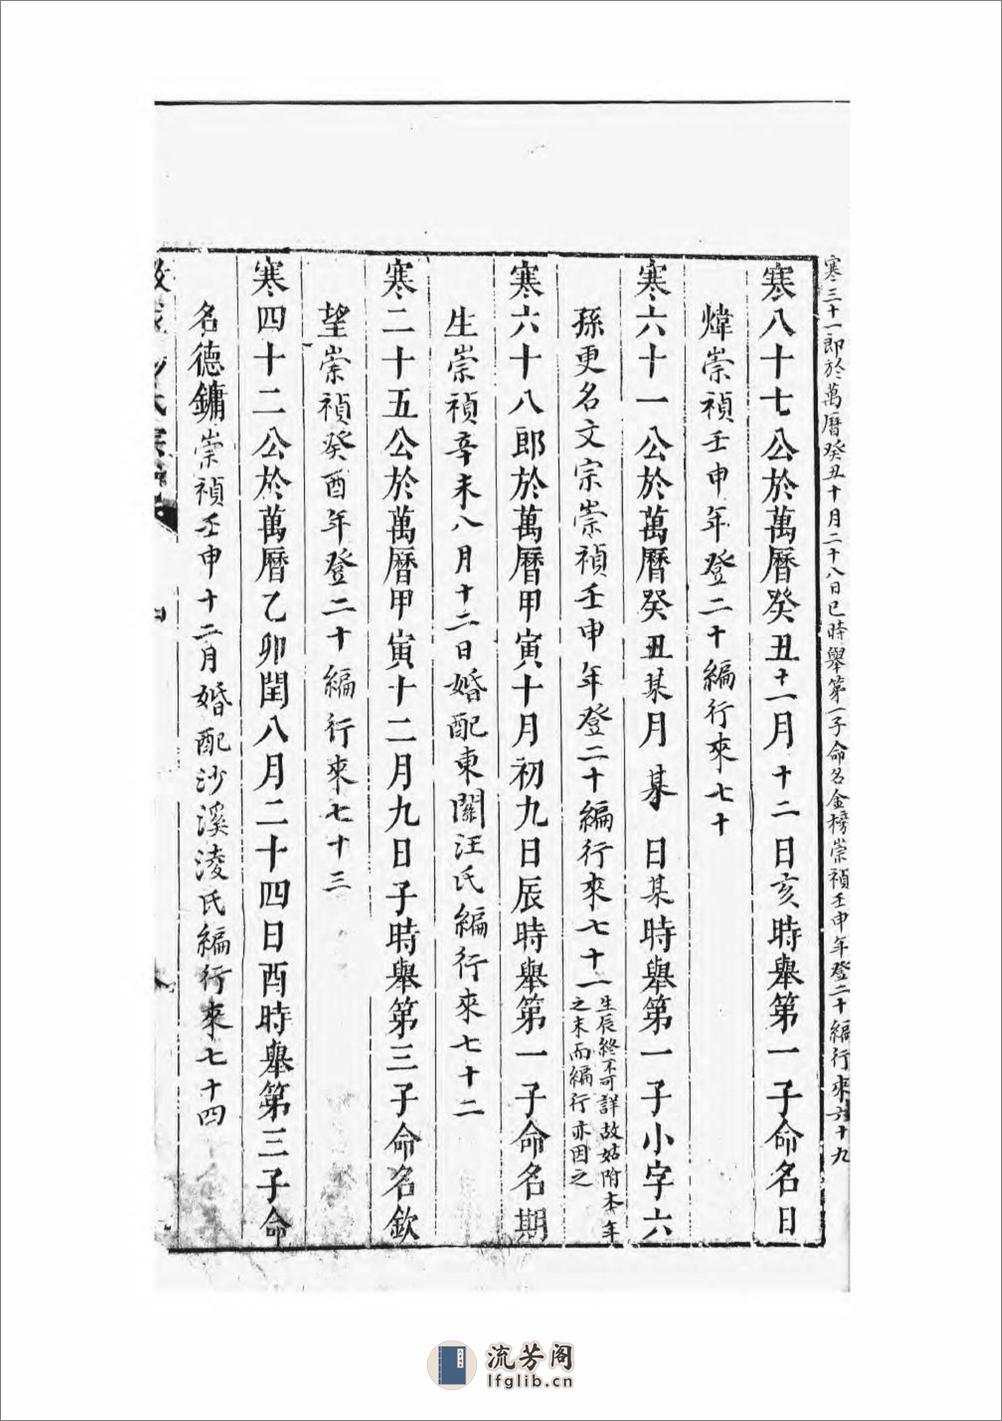 寒三十一郎於萬曆癸丑十月二十八日巳時舉第一子命名金榜崇禎壬申年登二十編行來六十九
寒八十七公於萬曆癸丑十一月十二日亥時舉第一子命名日
煒崇禎壬申年登二十編行來七十
寒六十一公於萬曆癸丑某月某日某時舉第一子小字六
孫更名文宗崇禎壬申年登二十編行來七十一生辰終不可詳故姑附本年
之末而編行亦因之
寒六十八郎於萬曆甲寅十月初九日辰時舉第一子命名期
生崇禎辛未八月十二日婚配東關汪氏編行來七十二
寒二十五公於萬曆甲寅十二月九日子時舉第三子命名欽
望崇禎癸酉年登二十編行來七十三
寒四十二公於萬曆乙卯閏八月二十四日酉時舉第三子命
名德鏞崇禎壬申十二月婚配沙溪淩氏編行來七十四
流芳阁
lfglib.cn